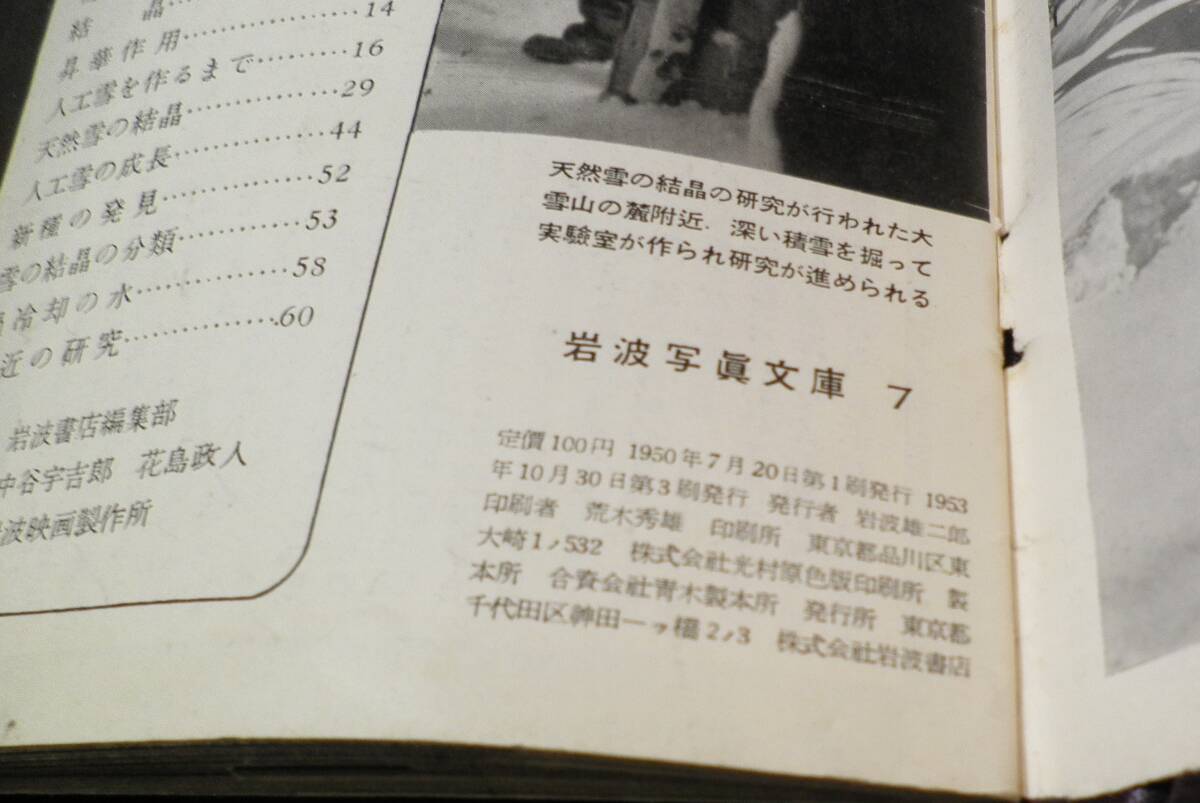 結　晶……
昇華作用……14
人工雪を作るまで……16
天然雪の結晶……29
人工雪の成長……44
新種の発見……52
雪の結晶の分類……53
冷却の水……58
近の研究……60
岩波書店編集部
中谷宇吉郎　花島政人
波映画製作所
天然雪の結晶の研究が行われた大
雪山の麓附近．深い積雪を掘って
実驗室が作られ研究が進められる
岩波写眞文庫 7
定價100円 1950年7月20日第1刷発行 1953
年10月30日第3刷発行 発行者 岩波雄二郎
印刷者 荒木秀雄 印刷所 東京都品川区東
大崎1ノ532 株式会社光村原色版印刷所 製
本所 合資会社青木製本所 発行所 東京都
千代田区神田一ッ橋2ノ3 株式会社岩波書店